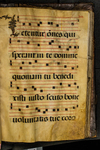 Letentur omnes qui
sperant in te domine
quoniam tu benedi
cisti iusto scuto bone
voluntatis tue coro